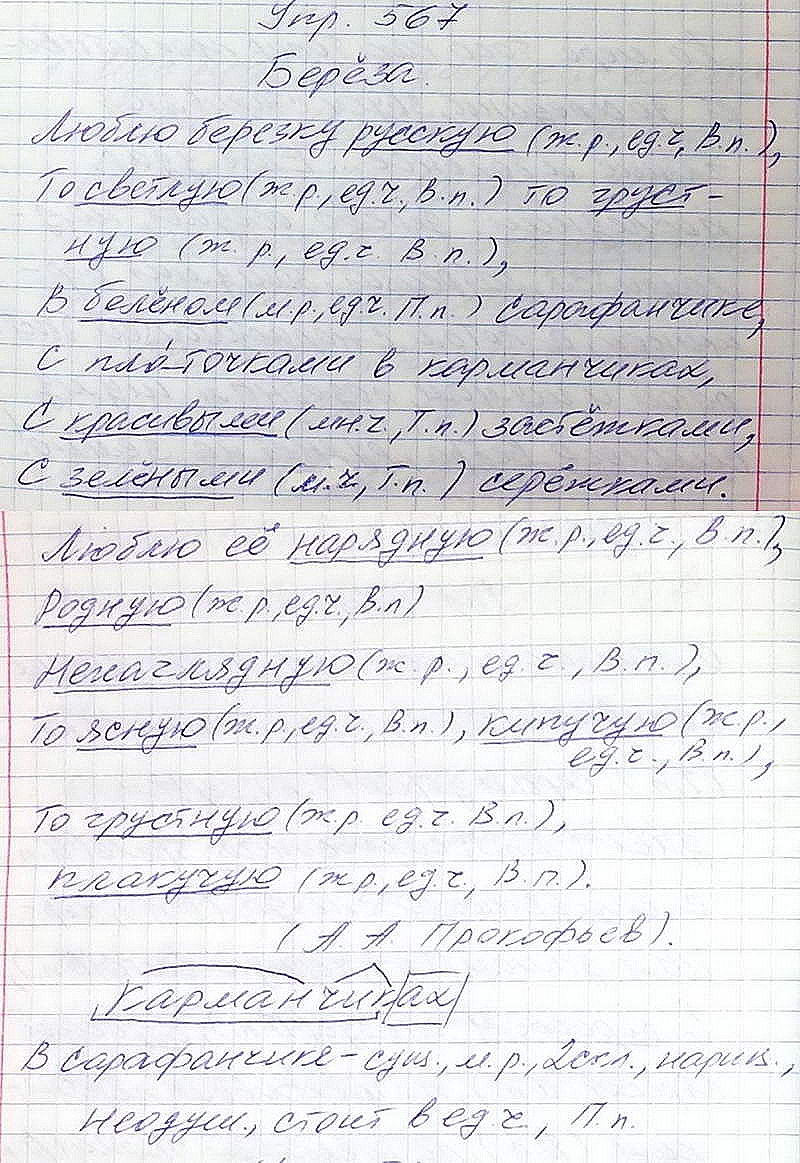 Упр. 567
Берёза.
Люблю березку русскую (ж.р., ед.ч, В.п.),
То светлую (ж.р., ед.ч., В.п.) то груст-
ную (ж.р., ед.ч. В.п.),
В белёном (м.р., ед.ч. П.п.) сарафанчике,
С пла́-точками в карманчиках,
С красивыми (мн.ч., Т.п.) застёжками,
С зелёными (м.ч., Т.п.) серёжками.
Люблю её нарядную (ж.р., ед.ч., В.п.),
Родную (ж.р., ед.ч., В.п)
Ненаглядную (ж.р., ед.ч., В.п.),
То ясную (ж.р., ед.ч., В.п.), кипучую (ж.р.,
ед.ч., В.п.),
То грустную (ж.р. ед.ч. В.п.),
плакучую (ж.р., ед.ч., В.п.).
(А. А. Прокофьев).
Карманчиках
В сарафанчике - сущ., м.р., 2 скл., нариц.,
неодуш., стоит в ед.ч., П.п.